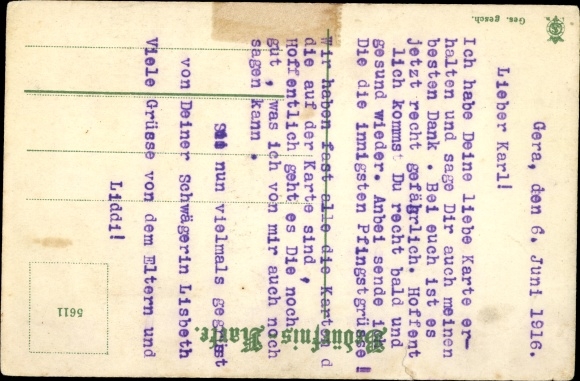 Gera, den 6. Juni 1916.
Lieber Karl!
Ich habe Deine liebe Karte er-
halten und sage Dir auch meinen
besten Dank . Bei euch ist es
jetzt recht gefährlich. Hoffent
lich kommst Du recht bald und
gesund wieder. Anbei sende ich
Die die innigsten Pfingstgrüsse!
Wir haben fast alle die Karten d
die auf der Karte sind ,
Hoffentlich geht es Die noch
gut , was ich von mir auch noch
sagen kann .
Sei nun vielmals gegrüsst
von Deiner Schwägerin Lisbeth
Viele Grüsse von dem Eltern und
Liddi!
Ges. gesch.
Bedürfnis Karte.
5611